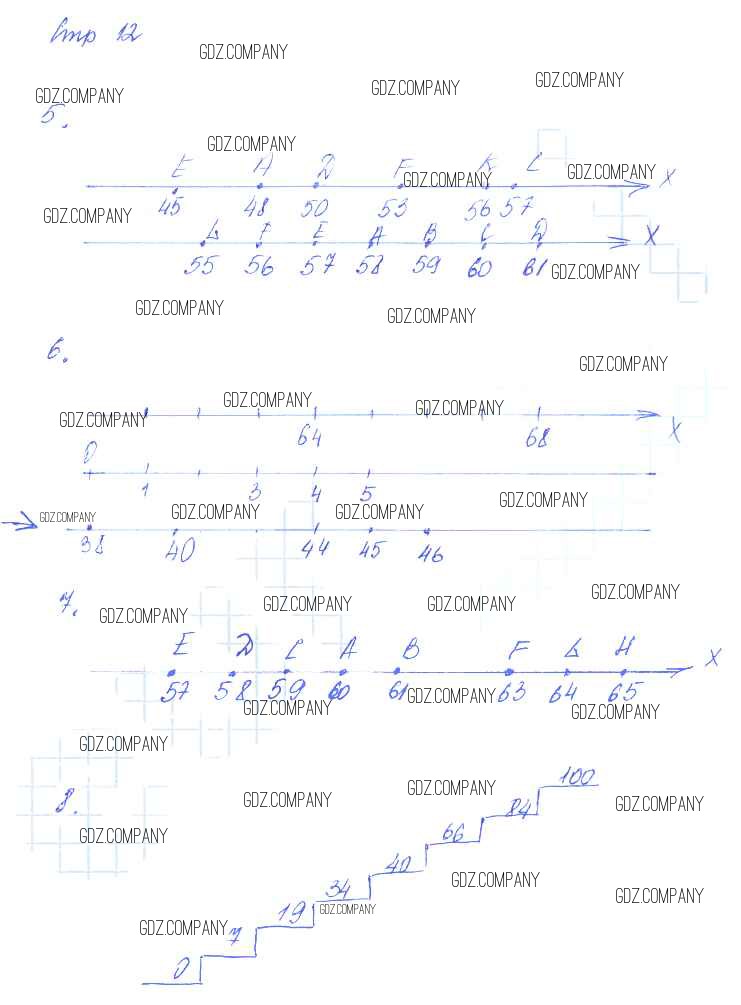 Стр 12
GDZ.COMPANY
GDZ.COMPANY GDZ.COMPANY GDZ.COMPANY
5.
GDZ.COMPANY
E A D F K C X
GDZ.COMPANY GDZ.COMPANY
45 48 50 53 56 57
GDZ.COMPANY
G F E A B C D X
55 56 57 58 59 60 61
GDZ.COMPANY
GDZ.COMPANY GDZ.COMPANY
6.
GDZ.COMPANY
GDZ.COMPANY GDZ.COMPANY GDZ.COMPANY
64 68 X
0
1 3 4 5
GDZ.COMPANY
GDZ.COMPANY GDZ.COMPANY GDZ.COMPANY
38 40 44 45 46
7.
GDZ.COMPANY GDZ.COMPANY GDZ.COMPANY GDZ.COMPANY
E D C A B F G H X
57 58 59 60 61 63 64 65
GDZ.COMPANY GDZ.COMPANY GDZ.COMPANY
GDZ.COMPANY
8.
100
GDZ.COMPANY GDZ.COMPANY GDZ.COMPANY
84
GDZ.COMPANY
66
40
GDZ.COMPANY GDZ.COMPANY
34
19 GDZ.COMPANY
GDZ.COMPANY
7
0